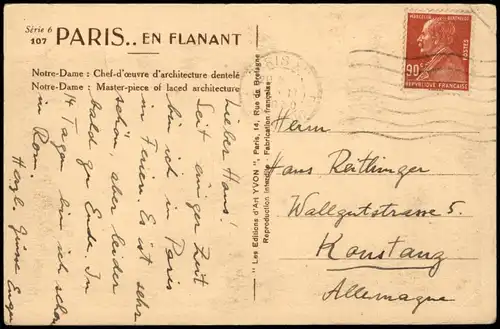 Série 6
107 PARIS.. EN FLANANT
Notre-Dame : Chef-d'œuvre d'architecture dentelé
Notre-Dame : Master-piece of laced architecture
Lieber Hans!
Seit einiger Zeit
bin ich in Paris
in Ferien. Es ist sehr
schön aber leider
bald zu Ende. In
14 Tagen bin ich schon
in Rom.
Herzl. Grüsse Eugen
"Les Editions d'Art YVON", Paris, 14, Rue de Bretagne
Reproduction interdite - Fabrication française
PARIS
MARCELIN BERTHELOT
90c
POSTES
REPVBLIQVE FRANÇAISE
Herrn
Hans Reitlinger
Wallgutstrasse 5.
Konstanz
Allemagne